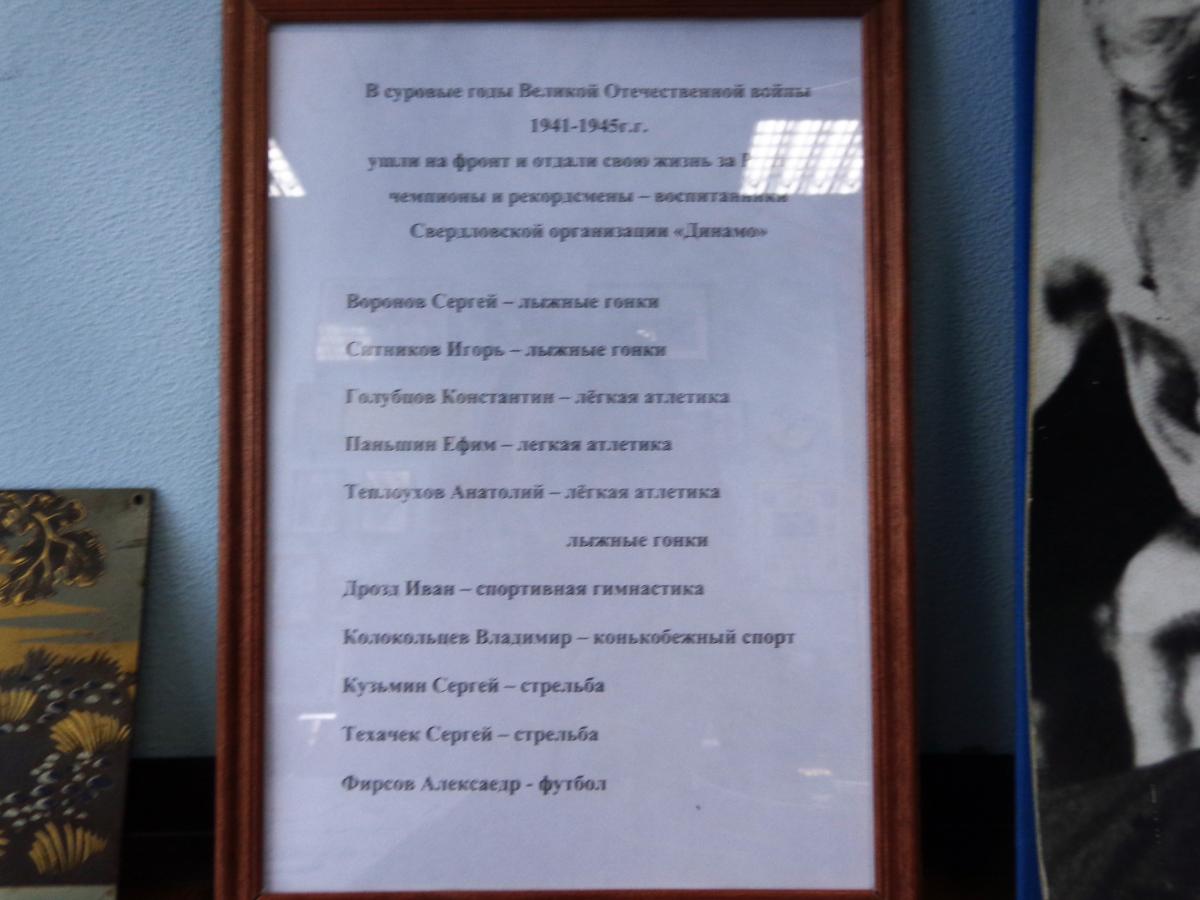 В суровые годы Великой Отечественной войны
1941-1945г.г.
ушли на фронт и отдали свою жизнь за
чемпионы и рекордсмены – воспитанники
Свердловской организации «Динамо»
Воронов Сергей – лыжные гонки
Ситников Игорь – лыжные гонки
Голубцов Константин – лёгкая атлетика
Паньшин Ефим – легкая атлетика
Теплоухов Анатолий – лёгкая атлетика
лыжные гонки
Дрозд Иван – спортивная гимнастика
Колокольцев Владимир – конькобежный спорт
Кузьмин Сергей – стрельба
Техачек Сергей – стрельба
Фирсов Алексаедр - футбол